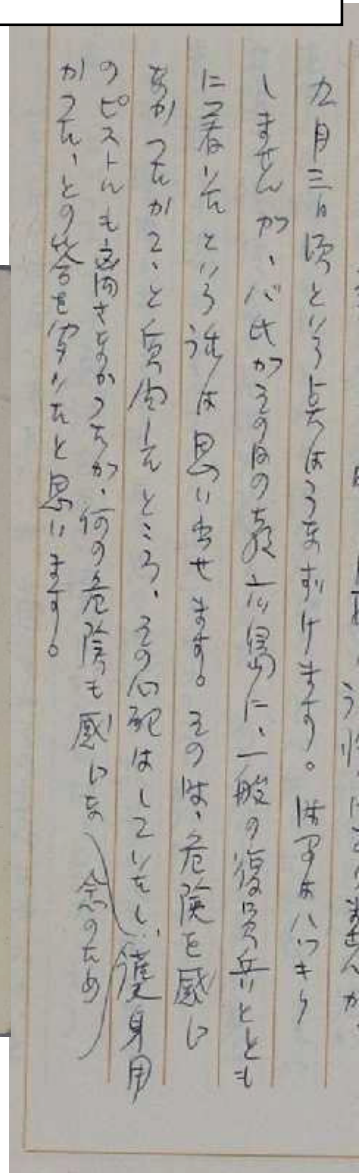 九月三日頃という点はうなずけます。ハッキリ
しませんが、バ氏がその日の朝広島に、一般の復員兵ととも
に着いたという話は思い出せます。その時、危険を感じ
なかったか?、と質問したところ、その心配はしていたし、護身用
のピストルもさなかったが、何の危険も感じな
念のため
かった、との答を聞いたと思います。